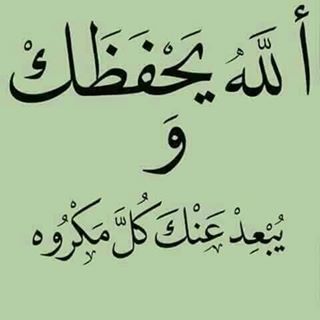 أللَّهُ يَحْفَظَكْ
وَ
يُبْعِدْ عَنْكَ كُلَّ مَكْرُوه